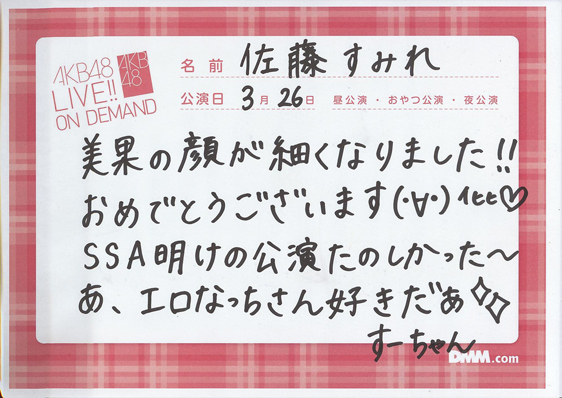 AKB48
LIVE!!
ON DEMAND
AKB
48
名前 佐藤すみれ
公演日 3月26日 昼公演・おやつ公演・夜公演
美果の顔が細くなりました!!
おめでとうございます(・∀・)ｲﾋﾋ♡
SSA明けの公演たのしかった〜
あ、エロなっちさん好きだぁ✧✧
すーちゃん
DMM.com